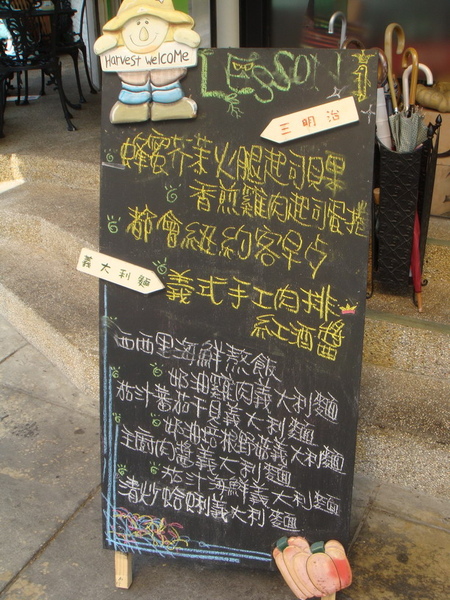 Harvest welcome
LESSON 1
三明治
蜂蜜芥茉火腿起司貝果
香煎雞肉起司蛋捲
都會紐約客早点
義大利麵
義式手工肉排
紅酒醬
西西里海鮮燉飯
奶油雞肉義大利麵
茄汁蕃茄干貝義大利麵
奶油培根野菇義大利麵
主廚肉醬義大利麵
茄汁海鮮義大利麵
清炒蛤蜊義大利麵